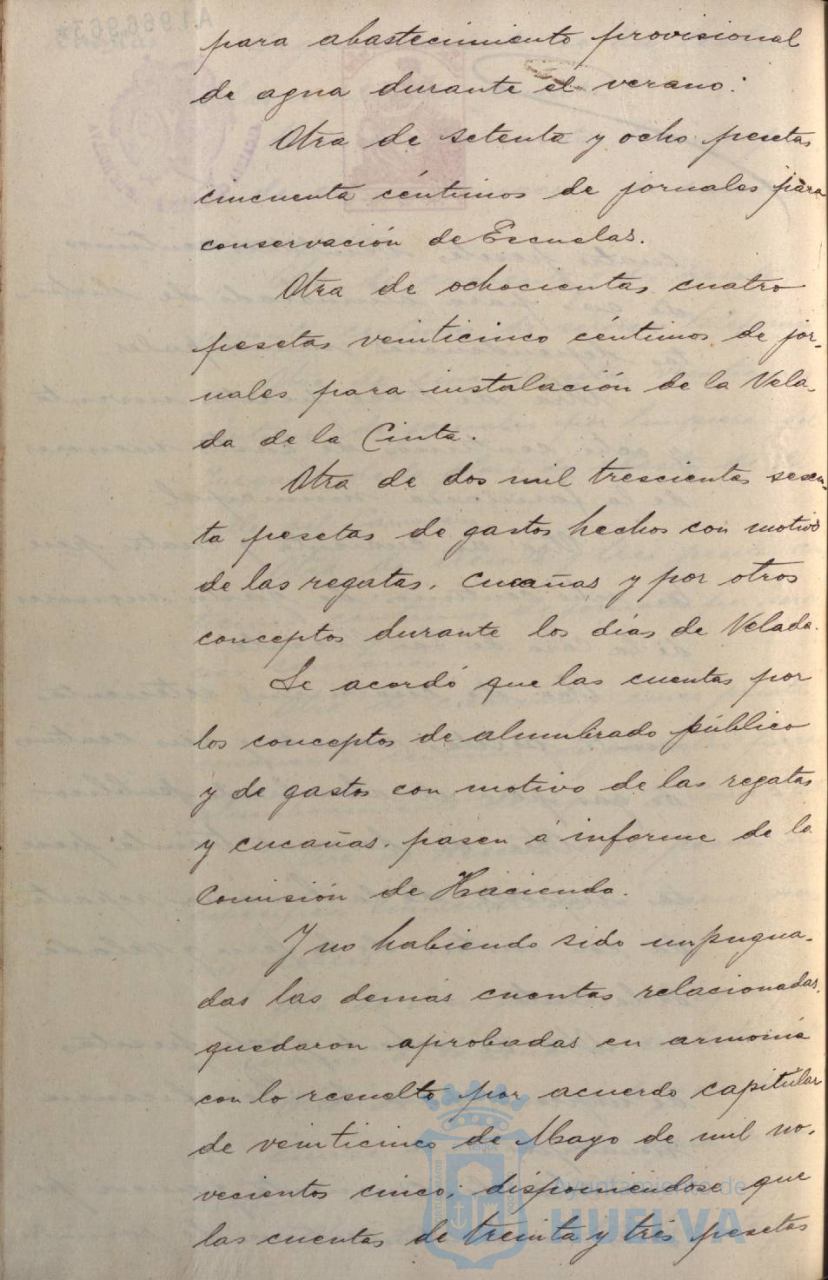 para abastecimiento provisional
de agua durante el verano.
Otra de setenta y ocho pesetas
cincuenta céntimos de jornales para
conservación de Escuelas.
Otra de ochocientas cuatro
pesetas veinticinco céntimos de jor-
nales para instalación de la Vela-
da de la Cinta.
Otra de dos mil trescientas sesen-
ta pesetas de gastos hechos con motivo
de las regatas, cucañas y por otros
conceptos durante los días de Velada.
Se acordó que las cuentas por
los conceptos de alumbrado público
y de gastos con motivo de las regatas
y cucañas, pasen á informe de la
Comisión de Hacienda.
Y no habiendo sido impugna-
das las demás cuentas relacionadas,
quedaron aprobadas en armonía
con lo resuelto por acuerdo capitular
de veinticinco de Mayo de mil no-
vecientos cinco; disponiéndose que
las cuentas de treinta y tres pesetas
Ayuntamiento de
HUELVA